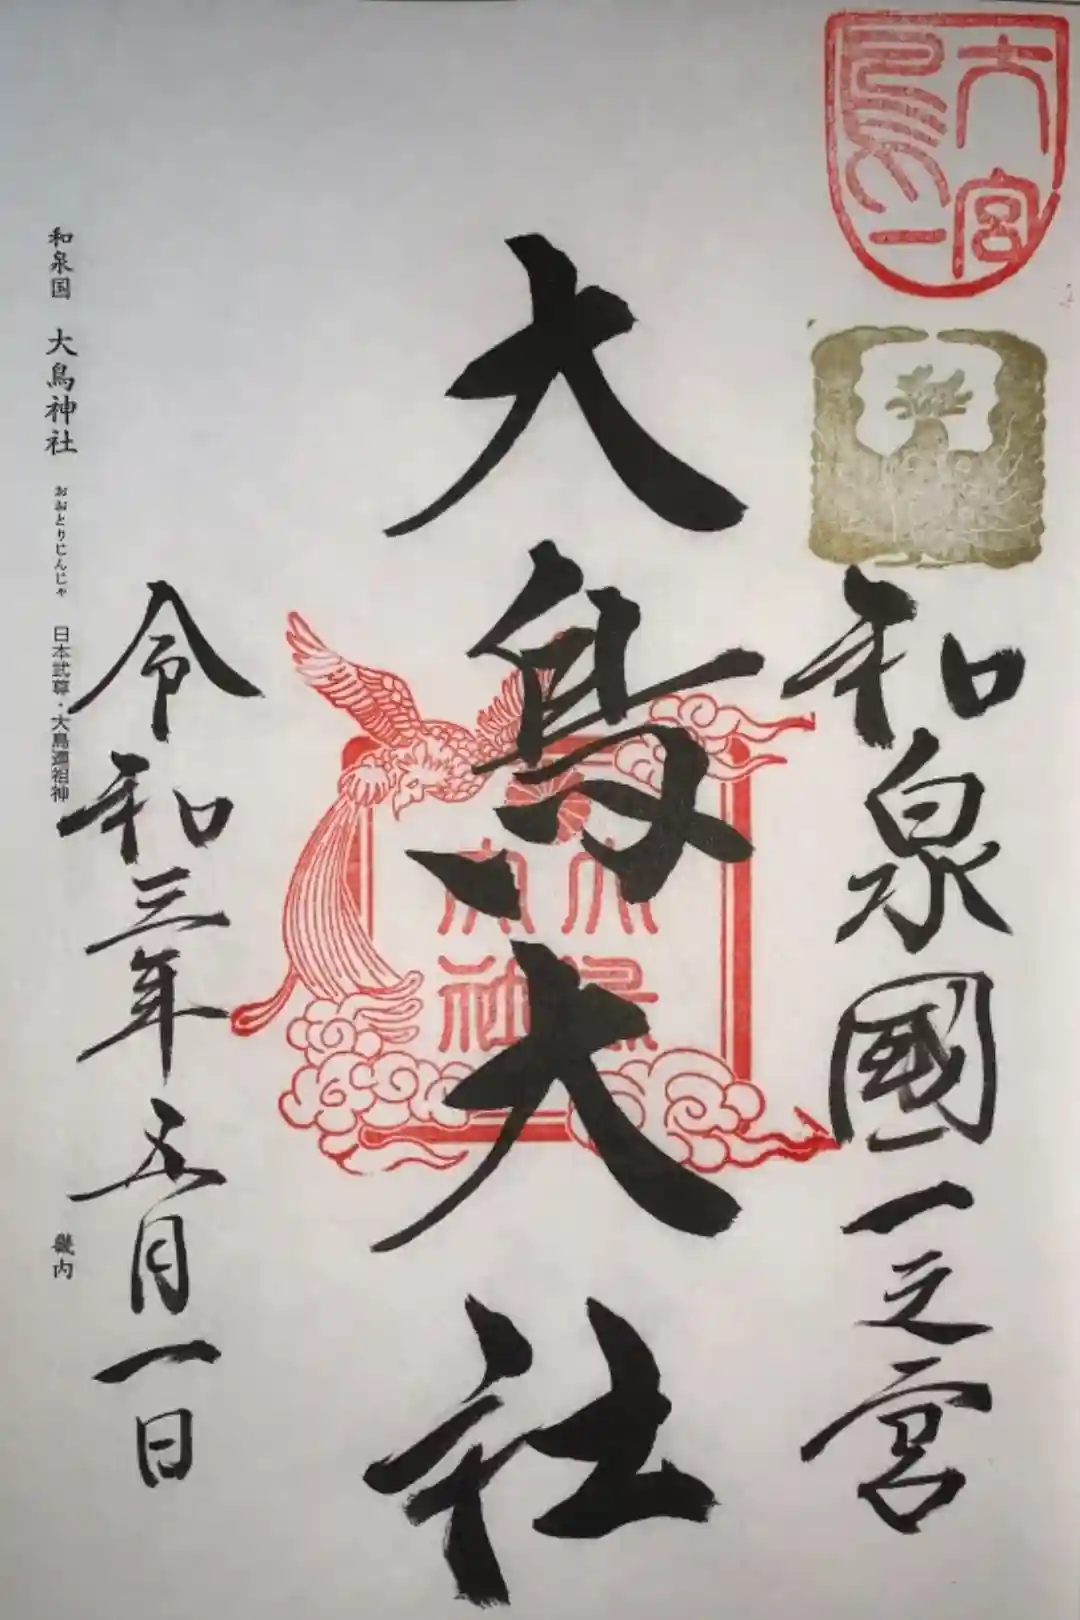 大鳥一宮
和泉國一之宮
大鳥大社
大鳥大社
令和三年五月一日
和泉国 大鳥神社 おおとりじんじゃ 日本武尊・大鳥連祖神 畿内